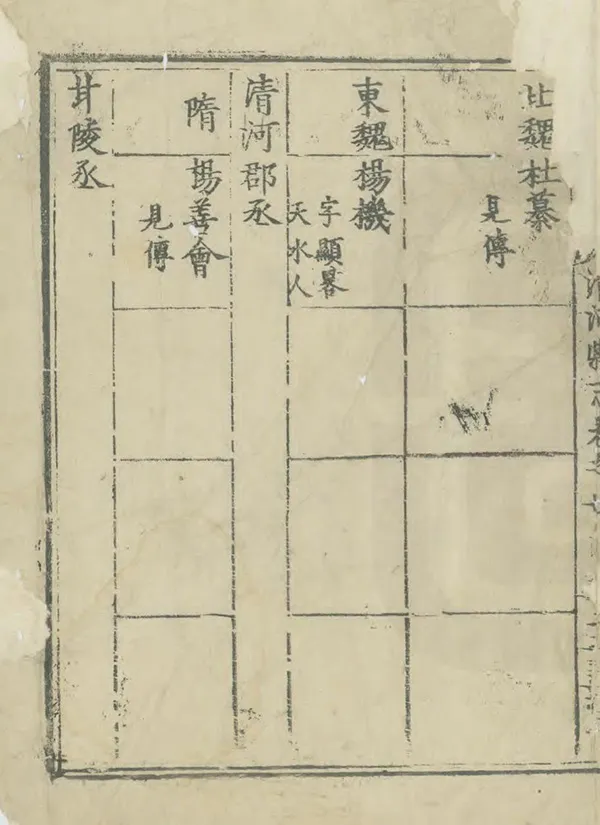 清河縣志卷之
北魏杜纂
見傳
東魏楊機
字顯畧
天水人
清河郡丞
隋楊善會
見傳
甘陵丞